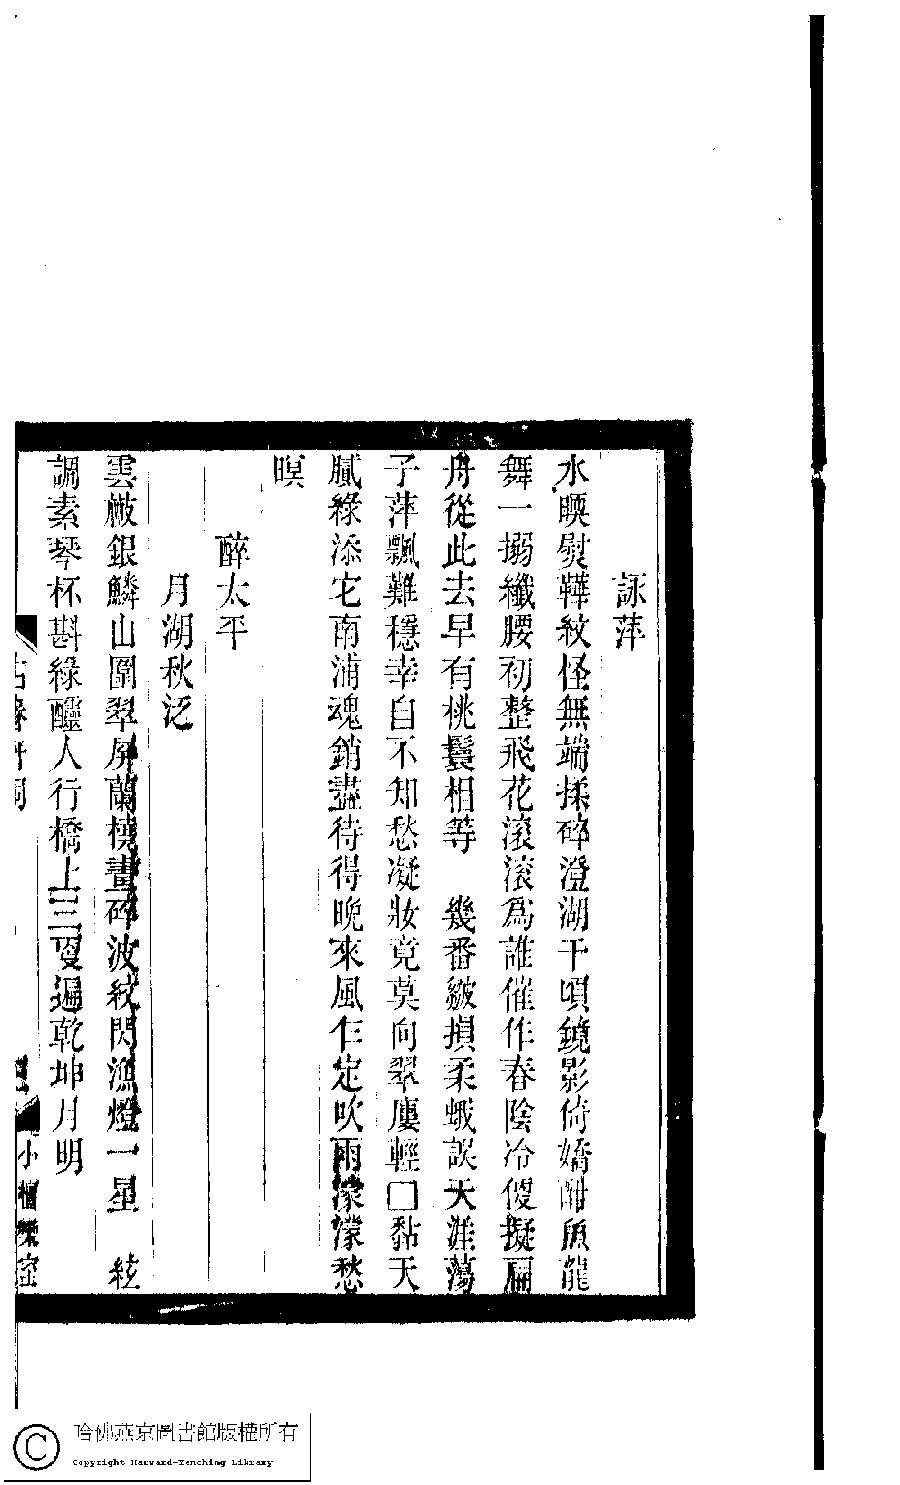 詠萍
水暎熨鞾紋怪無端揉碎澄湖千頃鏡影倚嬌酣魚龍
舞一搦纖腰初整飛花滾滾爲誰催作春陰冷便擬扁
舟從此去早有桃鬟相等　幾番皴損柔蛾誤天涯蕩
子萍飄難穩幸自不知愁凝妝竟莫向翠廔輕□黏天
膩綠添它南浦魂銷盡待得晚來風乍定吹雨濛濛愁
暝
醉太平
月湖秋泛
雲皺銀鱗山圍翠屏蘭橈畫碎波紋閃漁燈一星　絃
調素琴杯斟綠醽人行橋上三更遍乾坤月明
小檀欒室
哈佛燕京圖書館版權所有
Copyright Harvard-Yenching Library